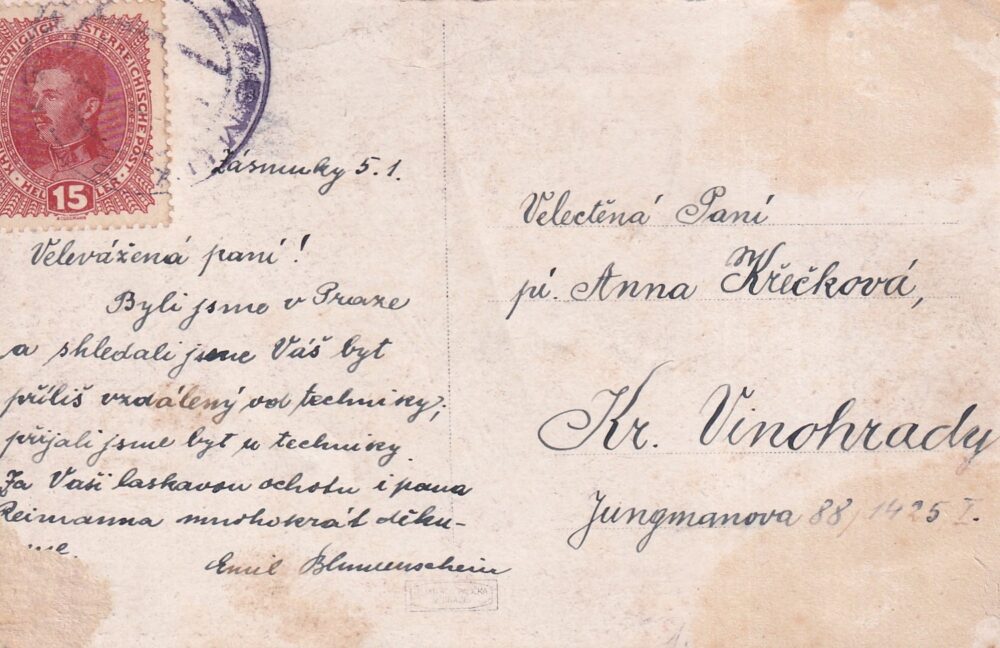 KAIS. KÖNIGLICH ÖSTERREICHISCHE POST
HELLER
15
Zásmuky 5.1.
Velevážená paní!
Byli jsme v Praze
a shledali jsme Váš byt
příliš vzdálený od techniky,
přijali jsme byt u techniky.
Za Vaši laskavou ochotu i pana
Reimanna mnohokrát děku-
me.
Emil Blumenschein
Velectěná Paní
pí. Anna Křečková,
Kr. Vinohrady
Jungmanova 88/1425 I.